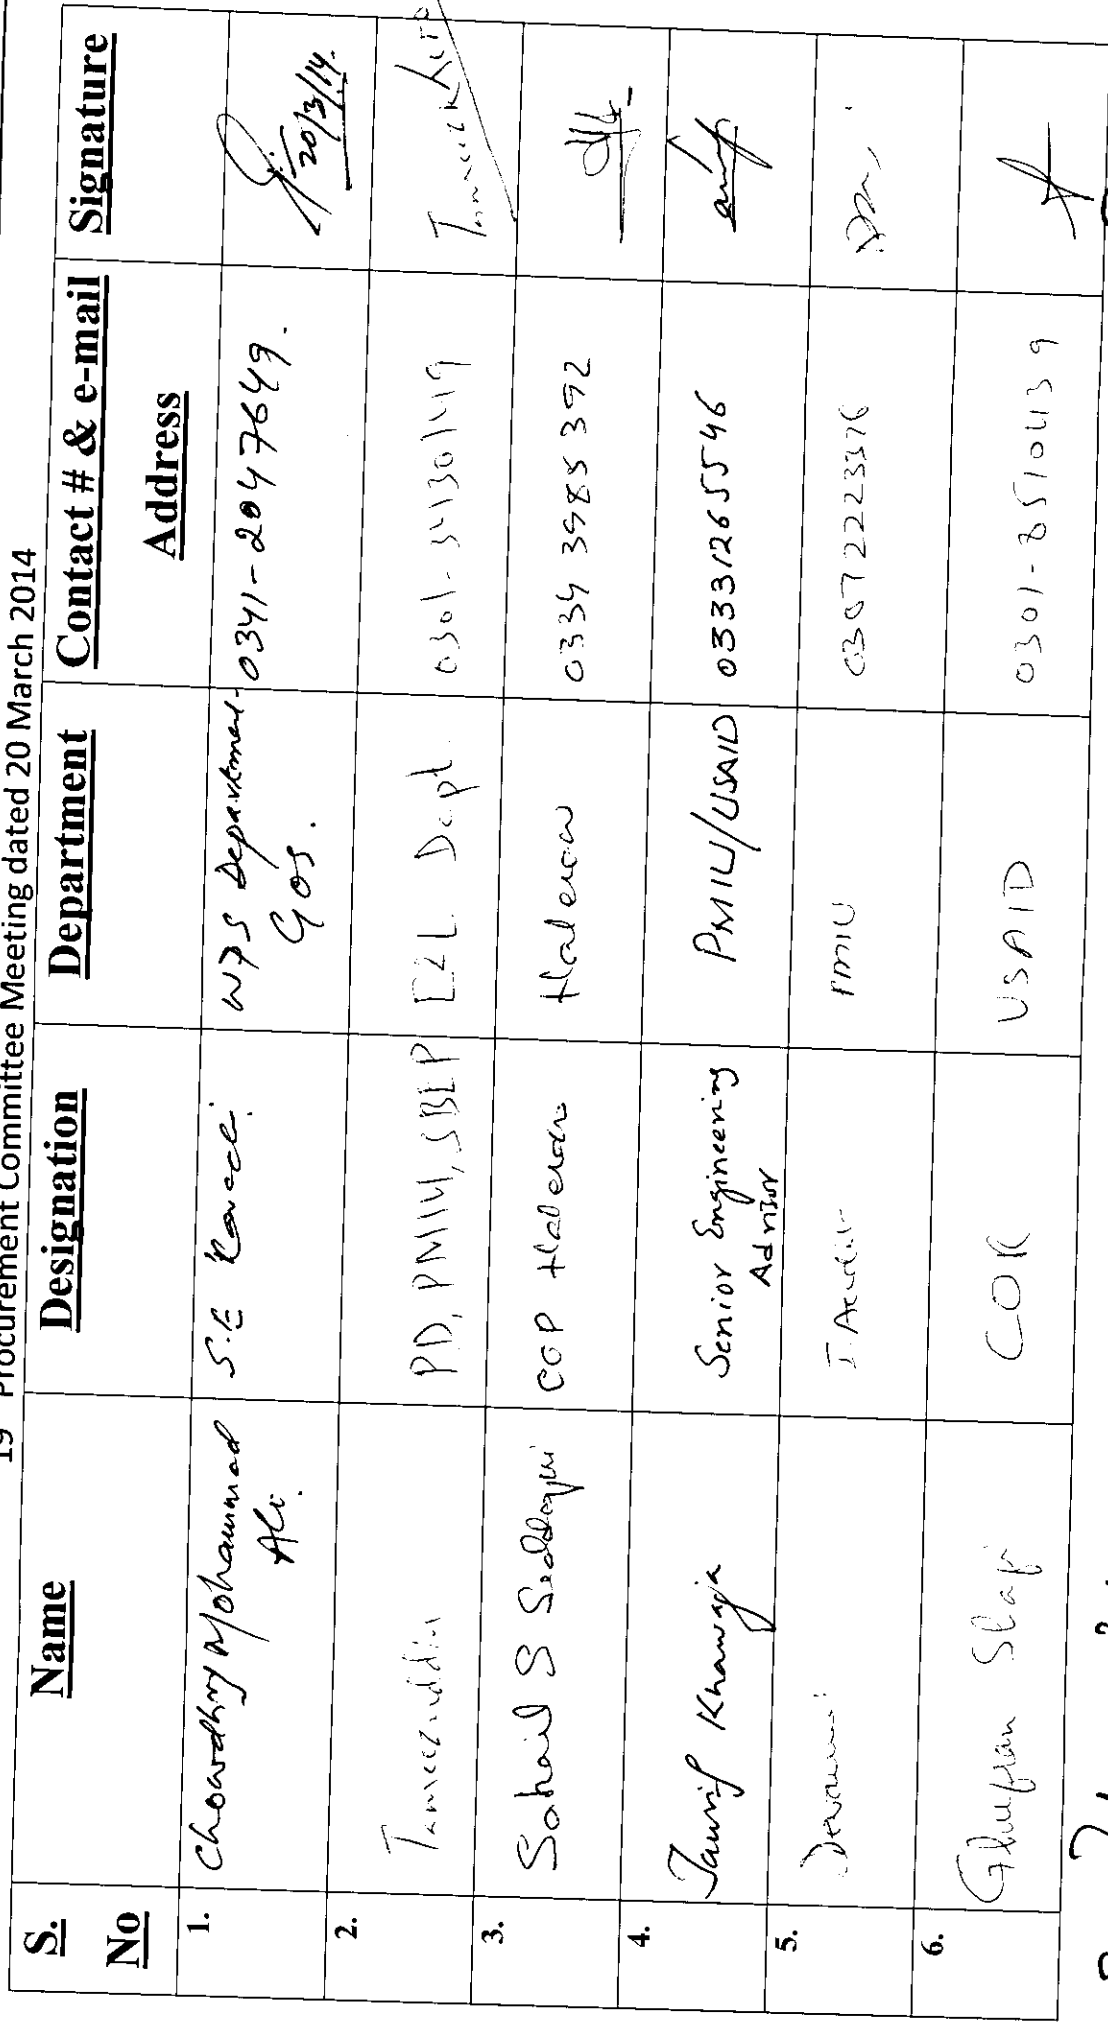 19 Procurement Committee Meeting dated 20 March 2014
S. No Name Designation Department Contact # & e-mail Address Signature
1. Chowdhry Mohammad Ali. S.E W&S Department GOS. 0341-2047649. 20/3/14.
2. Tameezuddin PD, PMIU, SBEP E&L Dept.
3. Sohail S Siddiqui COP Halcrow Halcrow 0334 3985392
4. Tausif Khawaja Senior Engineering Advisor PMIU/USAID 03331265546
5. PMIU 03072223376
6. Ghufran COR USAID 0301-8510439